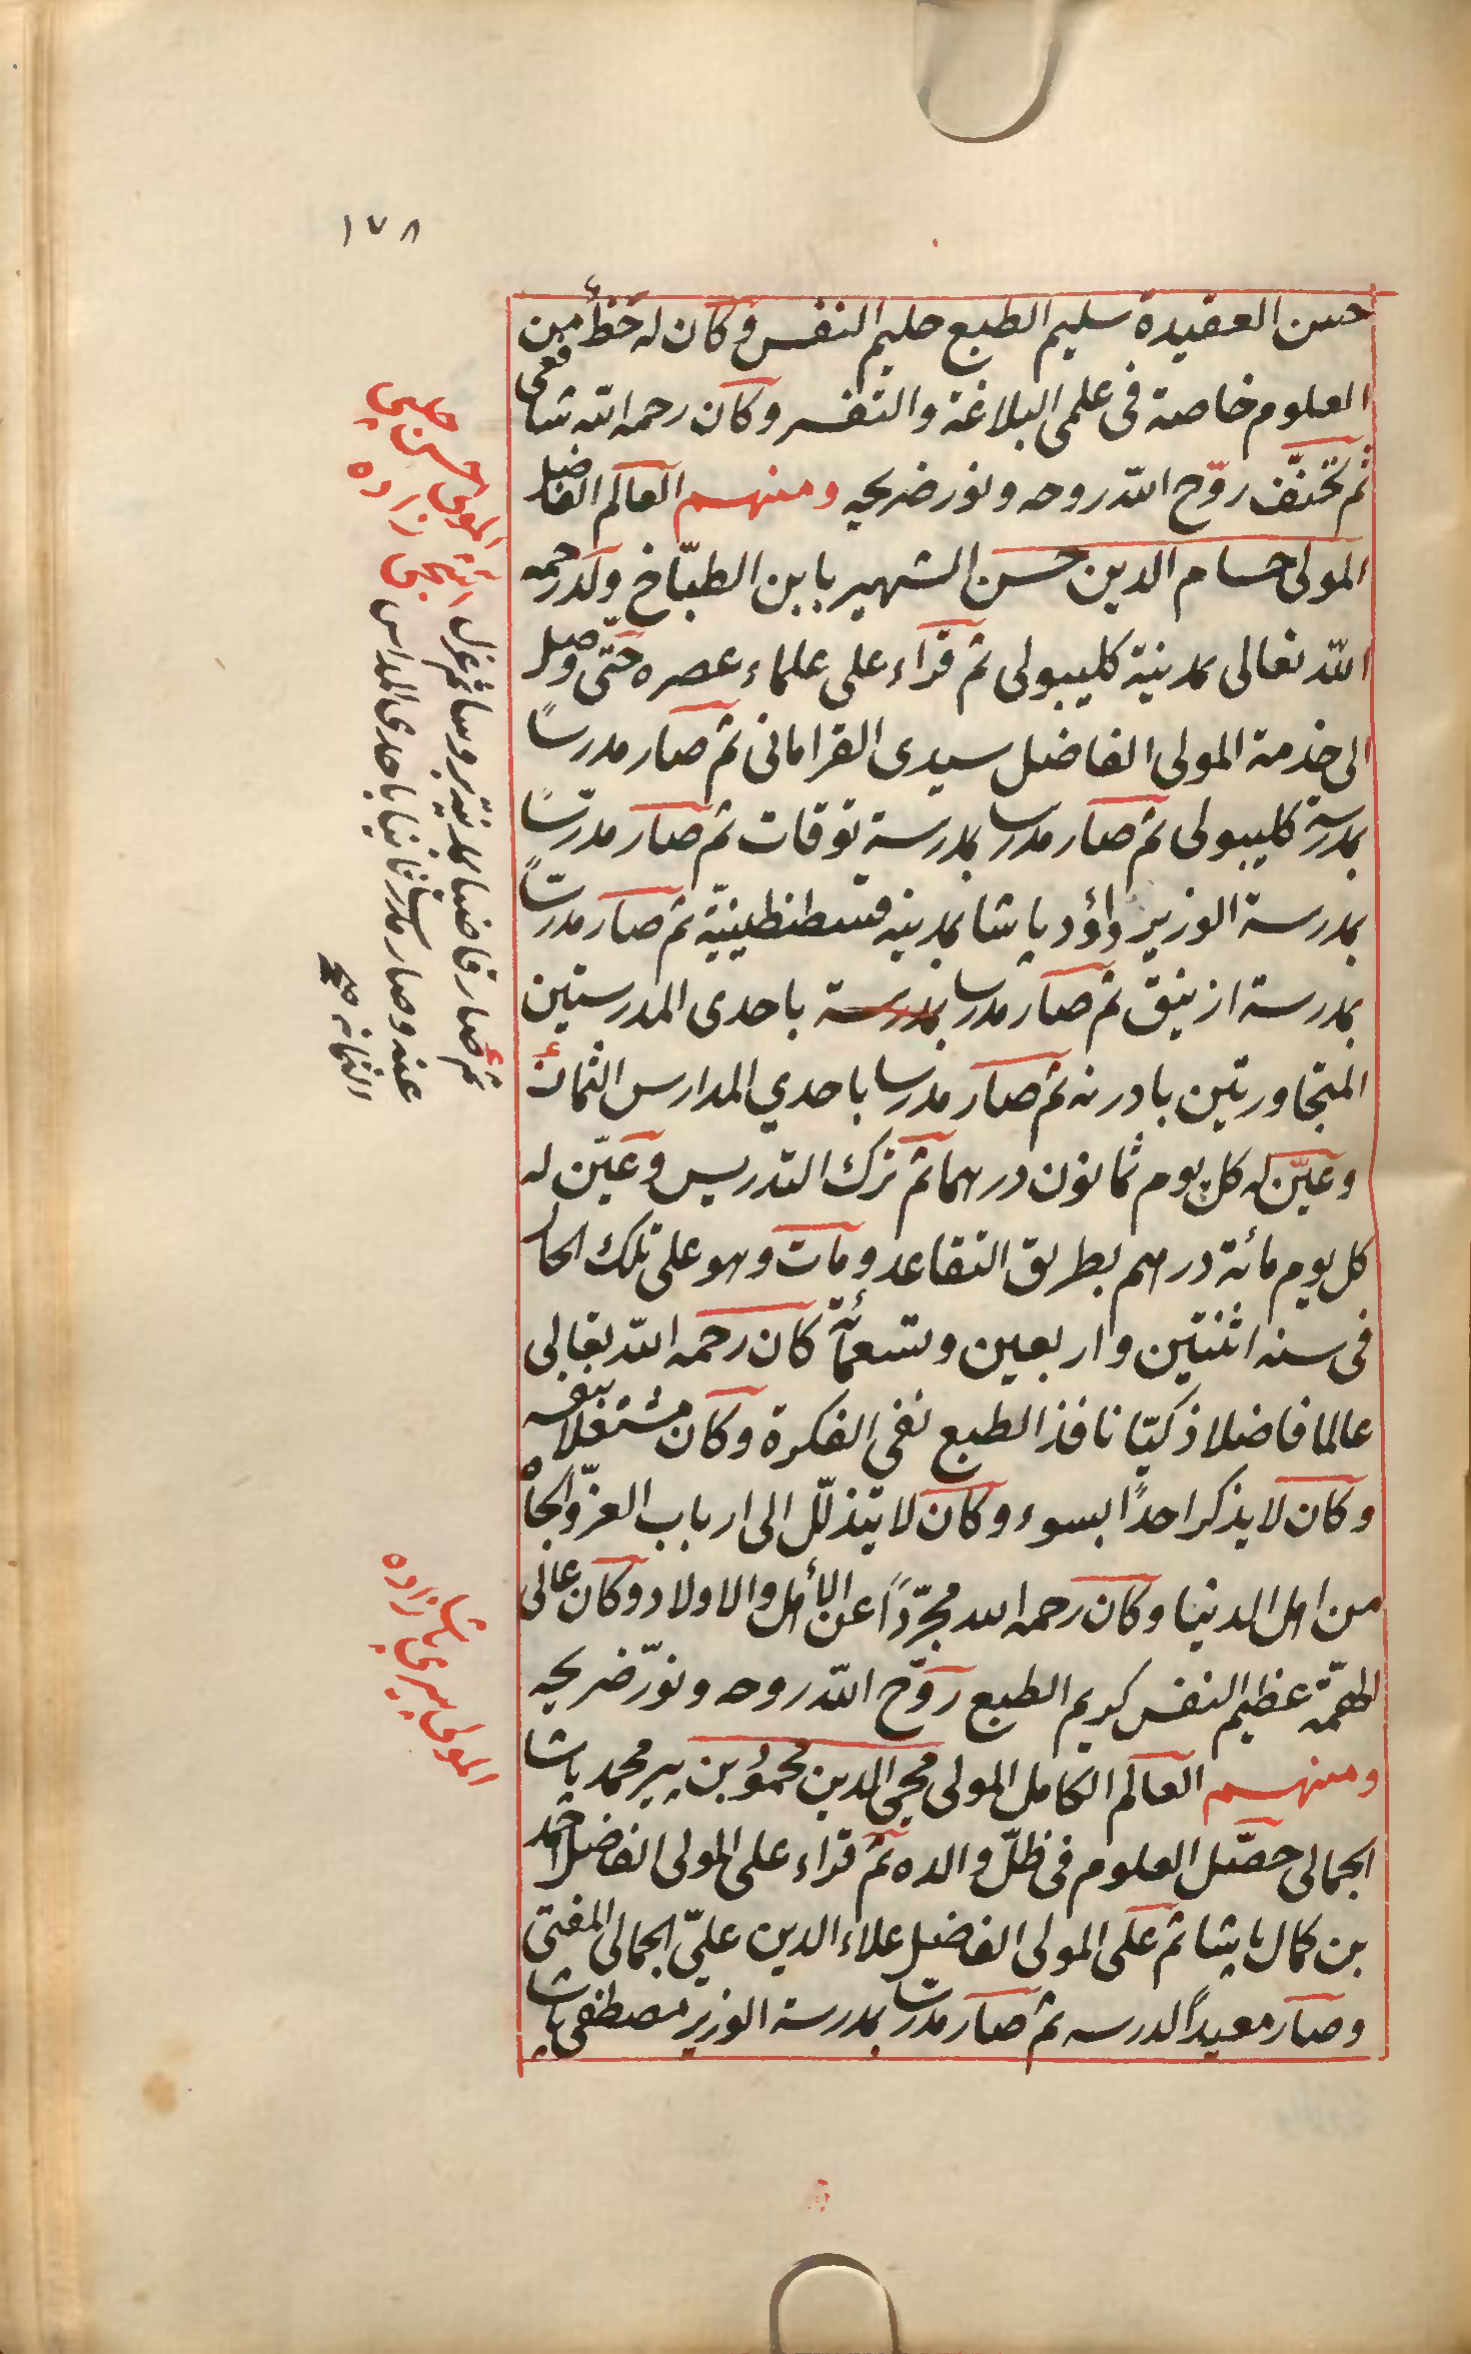 ١٧٨
حسن العقيدة سليم الطبع حليم النفس وكان له حظ من
العلوم خاصة فى علمى البلاغة والتفسر وكان رحمه الله شافعى
ثم تحنّف روّح الله روحه ونور ضريحه ومنهم العالم الفاضل
المولى حسام الدين حسن الشهير بابن الطبّاخ ولد رحمه
الله تعالى بمدينة كليبولى ثم قراء على علماء عصره حتى وصل
الى خدمة المولى الفاضل سيدى القرامانى ثم صار مدرسًا
بمدرسة كليبولى ثم صار مدرسا بمدرسة توقات ثم صار مدرّسًا
بمدرسة الوزير داؤد پاشا بمدينه قسطنطينيّة ثم صار مدرسًا
بمدرسة ازنيق ثم صار مدرسا بمدرسة باحدى المدرستين
المتجاورتين بادرنه ثم صار مدرسا باحدي المدارس الثمان
وعيّن له كل يوم ثمانون درهما ثم ترك التدريس وعيّن له
كل يوم مائة درهم بطريق التقاعد ومات وهو على تلك الحال
فى سنه اثنتين واربعين وتسعمأئة كان رحمه الله تعالى
عالما فاضلا ذكيّا نافذ الطبع نقى الفكرة وكان مشتغلا بنفسه
وكان لا يذكر احدًا بسوء وكان لا يتذلّل الى ارباب العزّ والجاه
من اهل الدنيا وكان رحمه الله مجرّدًا عن الأهل والاولاد وكان عالى
الهمّة عظيم النفس كريم الطبع روّح الله روحه ونوّر ضريحه
ومنهم العالم الكامل المولى محيى الدين محمود بن پير محمد پاشا
الجمالى حصّل العلوم فى ظلّ والده ثم قراء على المولى الفاضل احمد
بن كمال پاشا ثم على المولى الفاضل علاء الدين علىّ الجمالى المفتى
وصار معيدًا لدرسه ثم صار مدرسا بمدرسة الوزير مصطفى پاشا
المولى حسن چلبى
زاده
ثم صار قاضيا بمدينة بروسا ثم عزل
عنه وصار مدرسا ثانيا باحدى المدارس
الثمانه صح
المولى پيرى پاشا زاده